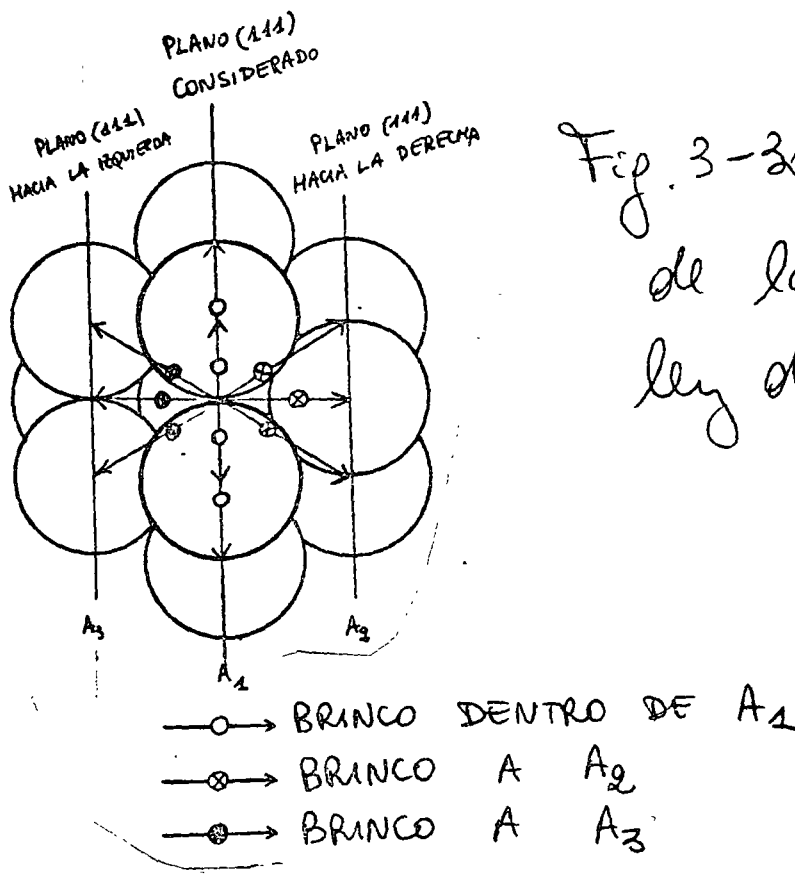 PLANO (111)
CONSIDERADO
PLANO (111)
HACIA LA IZQUIERDA
PLANO (111)
HACIA LA DERECHA
Fig. 3-3
de
ley d
A3
A1
A2
BRINCO DENTRO DE A1
BRINCO A A2
BRINCO A A3